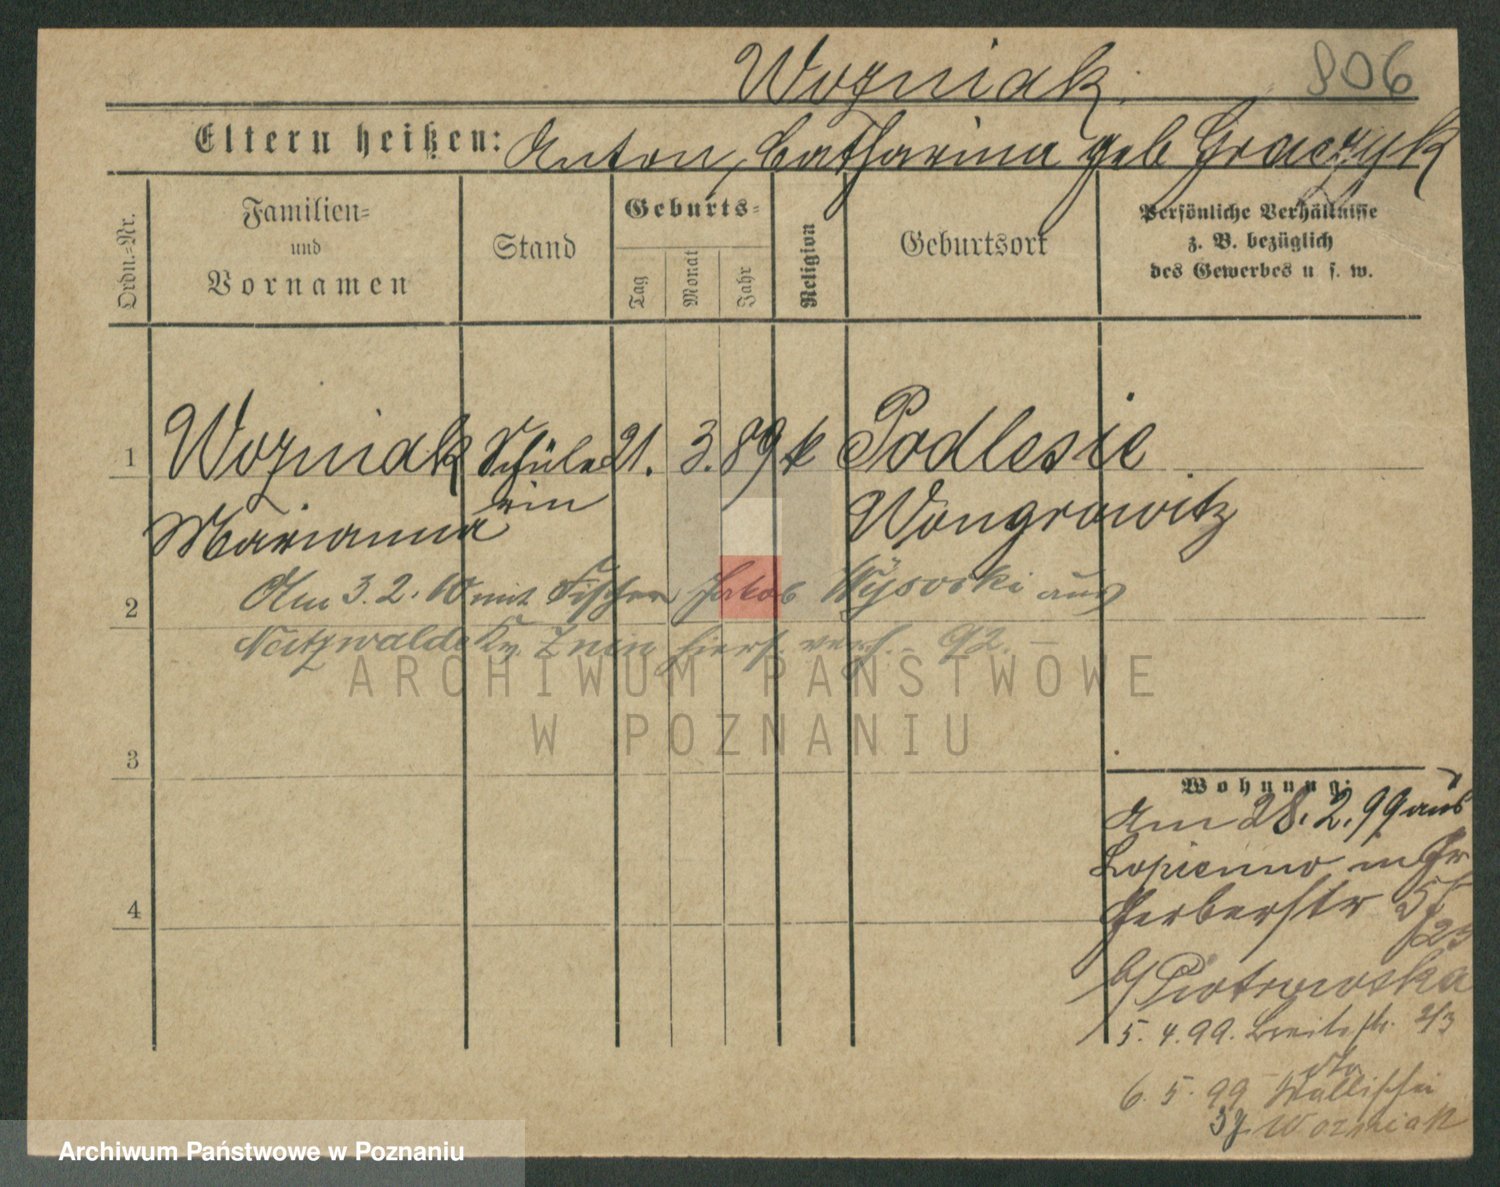 Wozniak.
806
Eltern heißen: Anton, Catharina geb Graczyk
Ordn.=Nr.
Familien=
und
Vornamen
Stand
Geburts=
Tag
Monat
Jahr
Religion
Geburtsort
Persönliche Verhältnisse
z. B. bezüglich
des Gewerbes u. s. w.
1 Wozniak Schüle 21. 3. 89 k Podlesie
rin
Marianna Wongrowitz
Am 3.2. mit Fischer Jakob Wysocki aus
2
Netzwalde Kr. Znin hierf. verh. - 92. -
ARCHIWUM PAŃSTWOWE
W POZNANIU
3
Wohnung:
Am 28.2.99 aus
Lopienno in Gr
4
Gerberstr
b/Piotrowska
5. 4. 99. Breitestr. 2/3
6. 5. 99 Wallischei
Wozniak
Archiwum Państwowe w Poznaniu